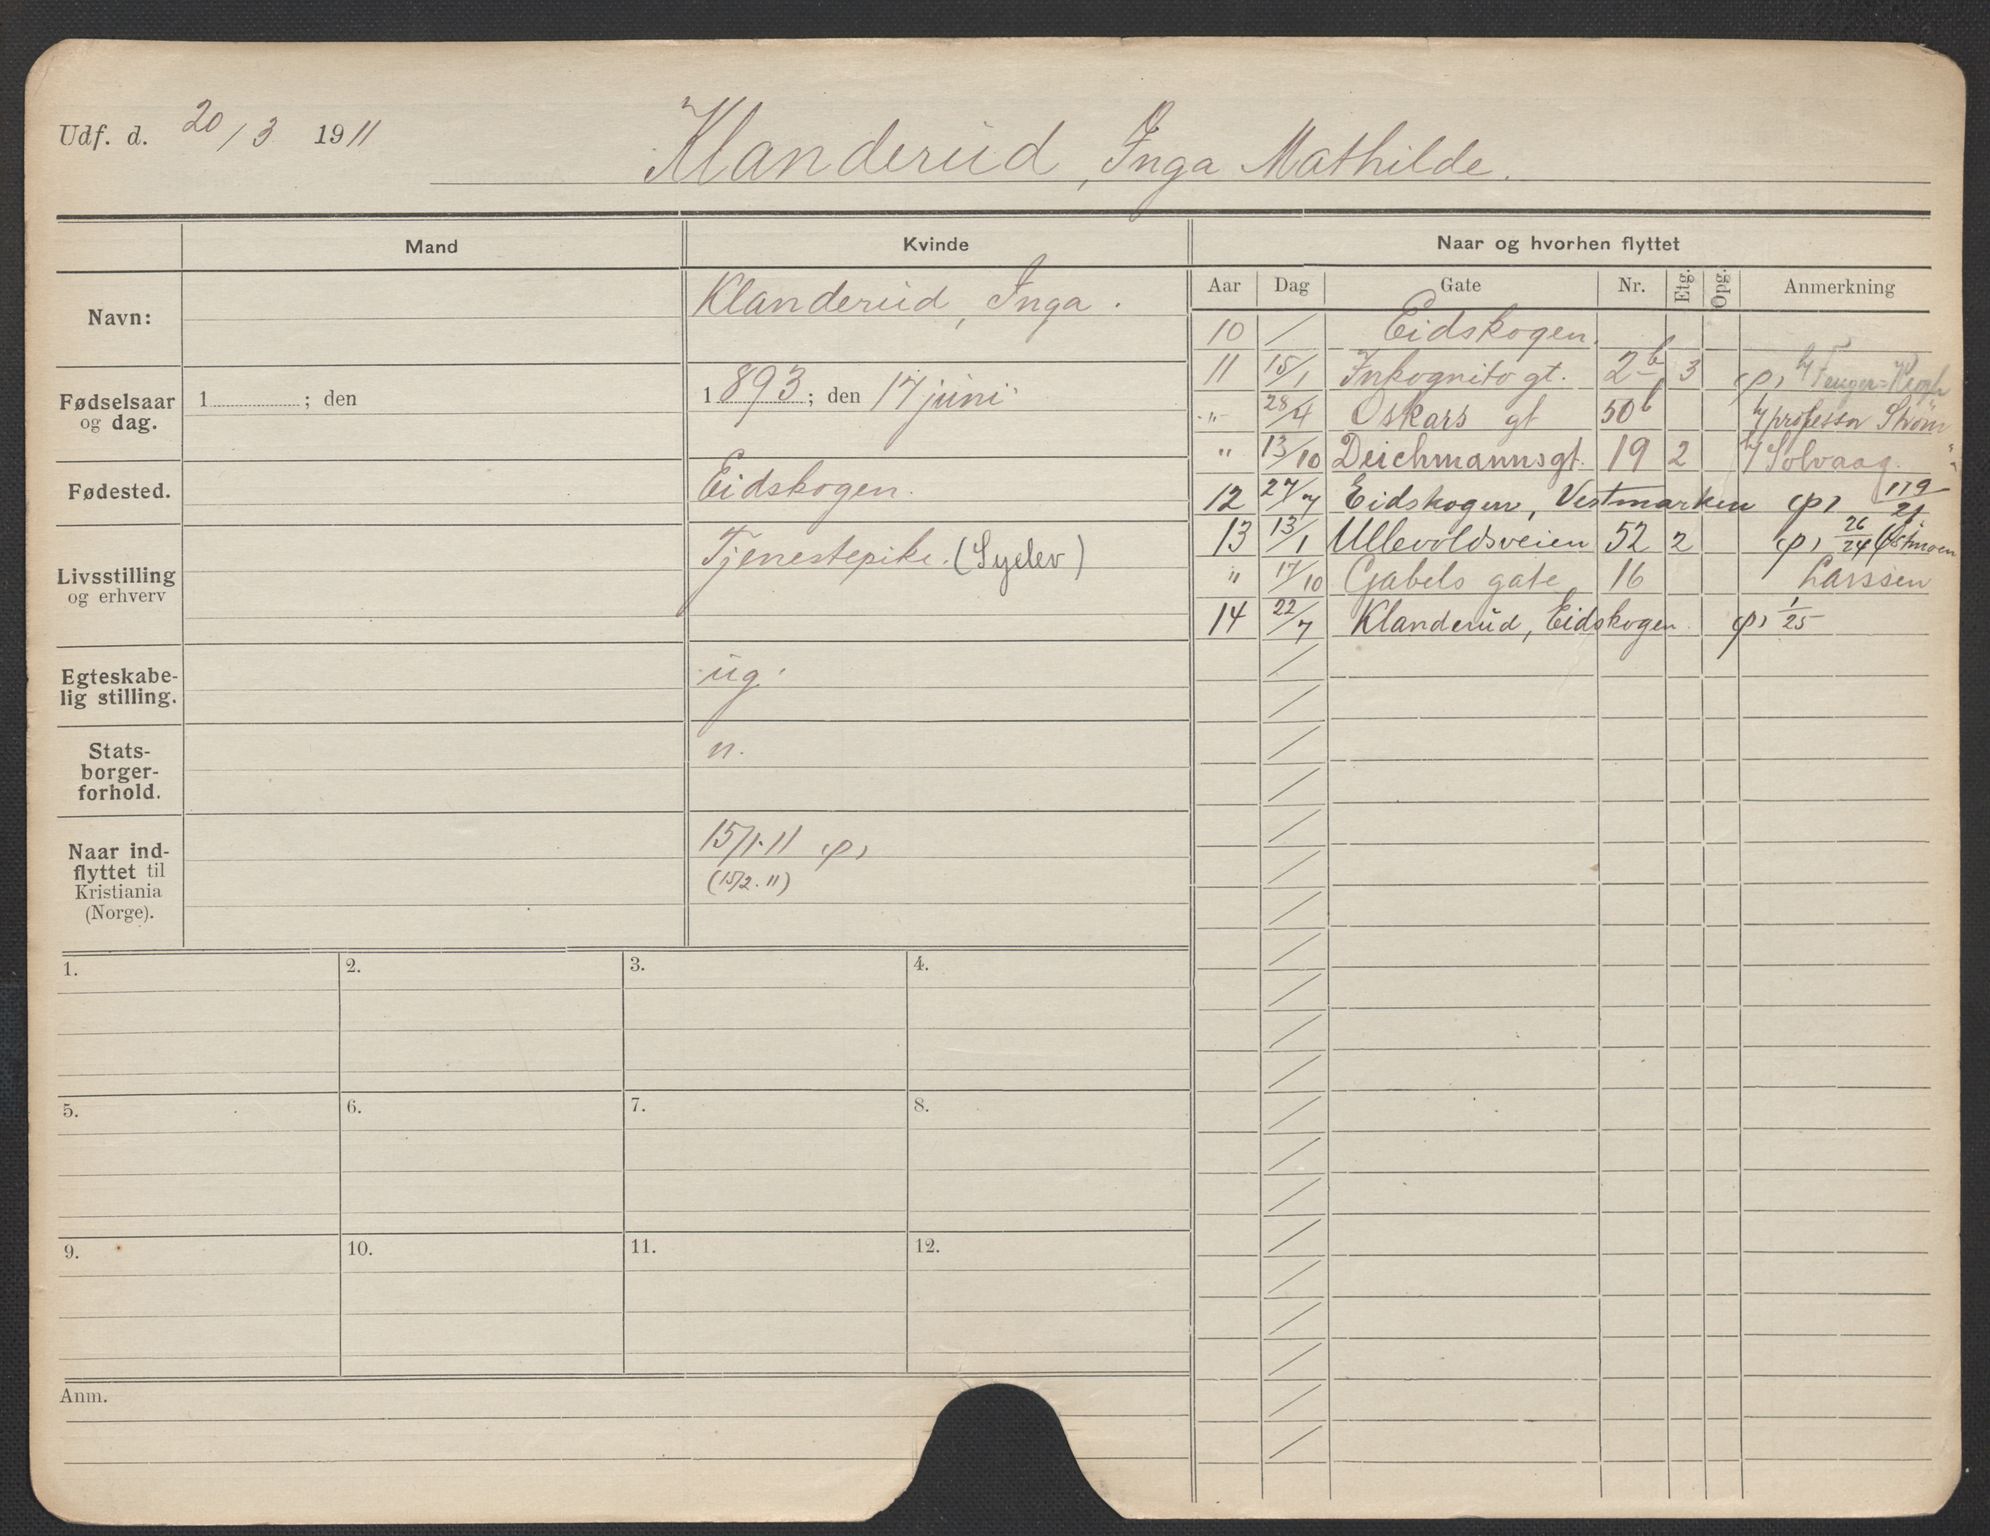 Udf. d. 20/3 1911
Klanderud, Inga Mathilde.
Mand
Kvinde
Naar og hvorhen flyttet
Aar Dag Gate Nr. Etg. Opg. Anmerkning
Navn:
Klanderud, Inga.
Fødselsaar
og dag.
1 ; den
1893; den 17 juni
Fødested.
Eidskogen.
Livsstilling
og erhverv
Tjenestepike. (Syelev)
Egteskabe-
lig stilling.
ug.
Stats-
borger-
forhold.
n.
Naar ind-
flyttet til
Kristiania
(Norge).
15/1.11 (p)
(15/2.11)
10 / Eidskogen.
11 15/1 Inkognito gt. 2b 3 (p)
" 28/4 Oskars gt 50b h/ professor Strøm
" 13/10 Deichmannsgt. 19 2 h/ Solvaag.
12 27/7 Eidskogen, Vestmarken (p) 119/21
13 13/1 Ullevoldsveien 52 2 (p) 26/24 Østmoen
" 17/10 Gabels gate 16 Larssen
14 22/7 Klanderud, Eidskogen. (p) 1/25
1. 2. 3. 4.
5. 6. 7. 8.
9. 10. 11. 12.
Anm.